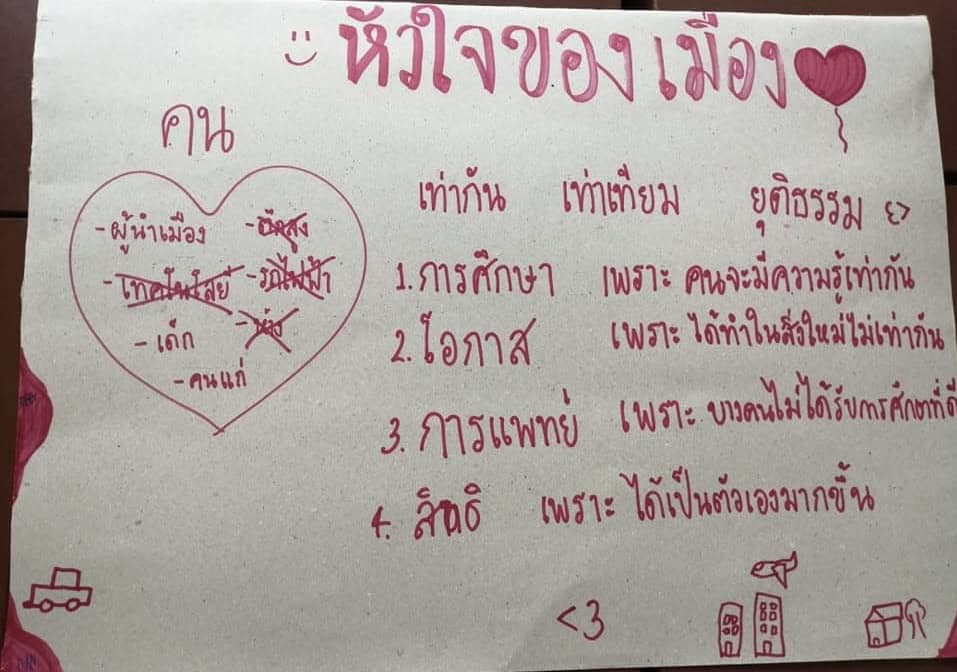 หัวใจของเมือง
คน
- ผู้นำเมือง - ตึกสูง
- เทคโนโลยี - รถไฟฟ้า
- เด็ก - ห้าง
- คนแก่
เท่ากัน เท่าเทียม ยุติธรรม
1. การศึกษา เพราะ คนจะมีความรู้เท่ากัน
2. โอกาส เพราะ ได้ทำในสิ่งใหม่ไม่เท่ากัน
3. การแพทย์ เพราะ บางคนไม่ได้รับการศึกษาที่ดี
4. สิทธิ เพราะ ได้เป็นตัวเองมากขึ้น
<3